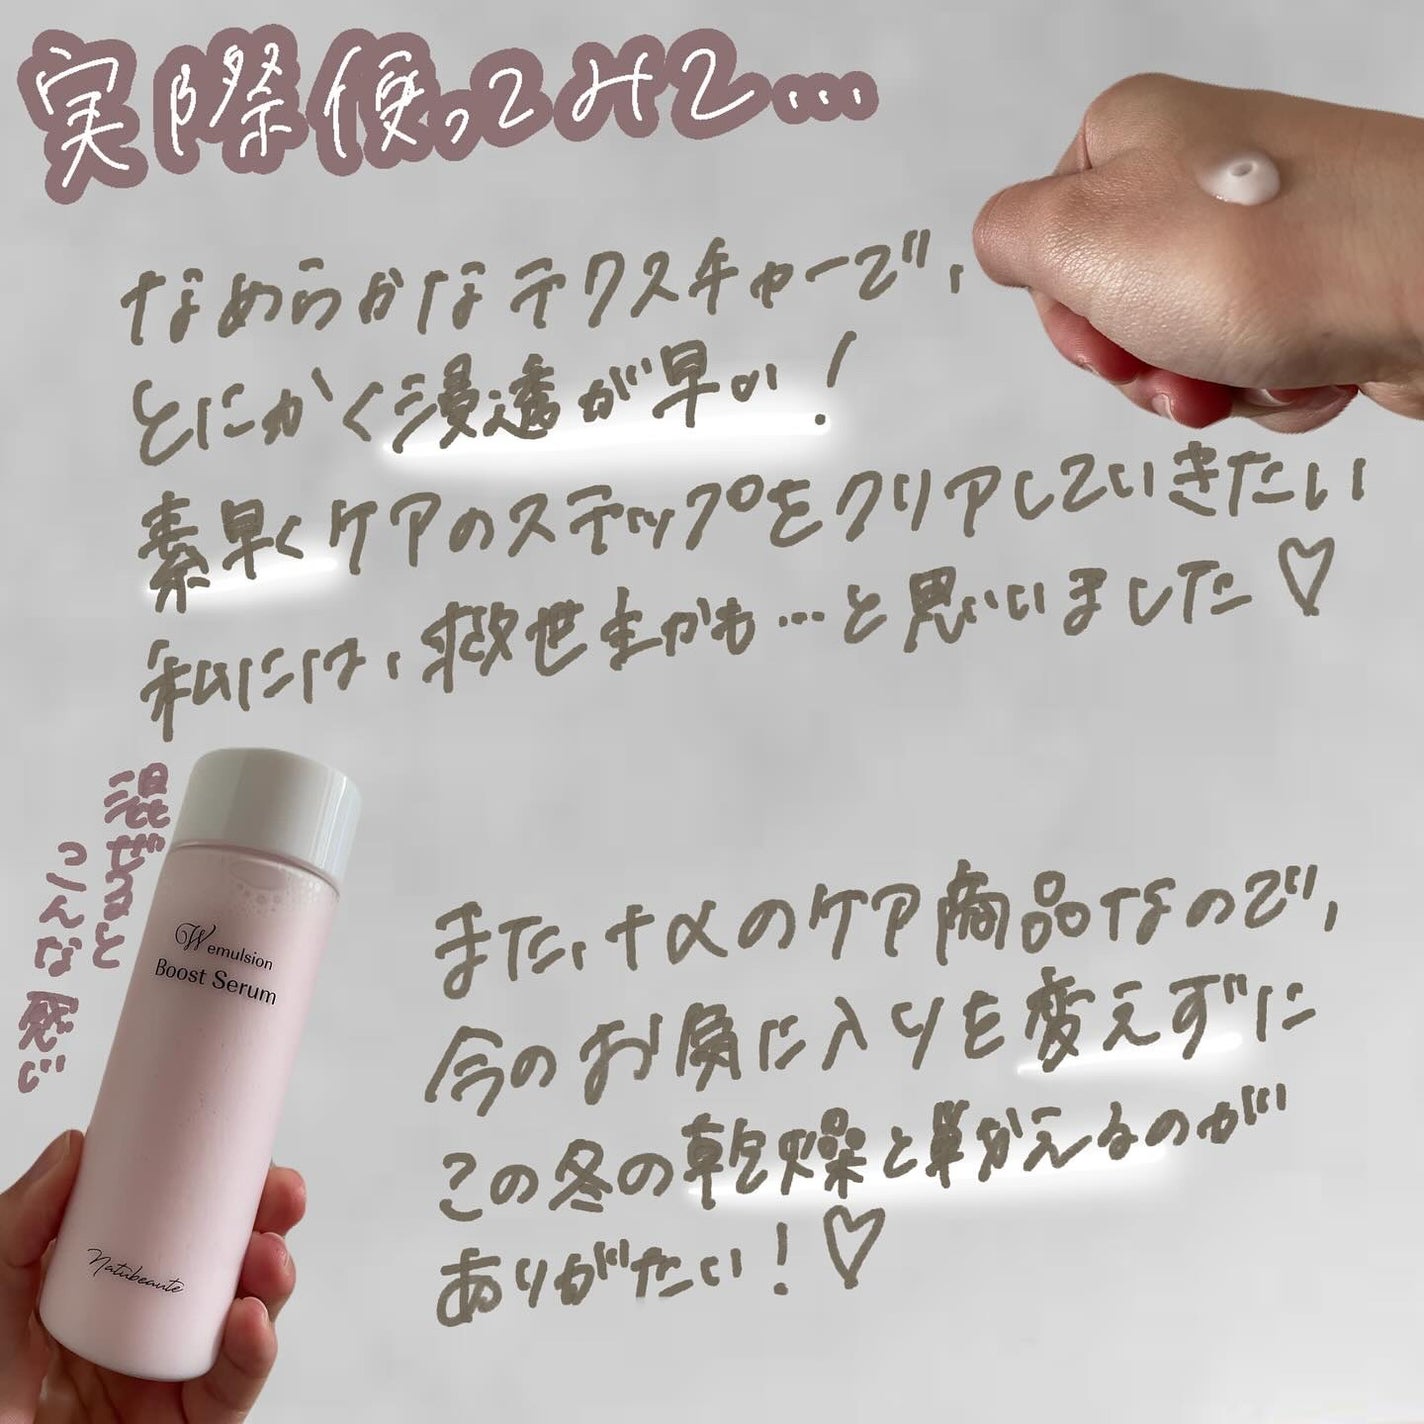 実際使ってみて...
なめらかなテクスチャーで、
とにかく浸透が早い!
素早くケアのステップをクリアしていきたい
私には、救世主かも...と思いました♡
混ぜると
こんな感じ
W emulsion
Boost Serum
Natubeauté
また、+αのケア商品なので、
今のお気に入りを変えずに
この冬の乾燥と戦えるのが
ありがたい!♡